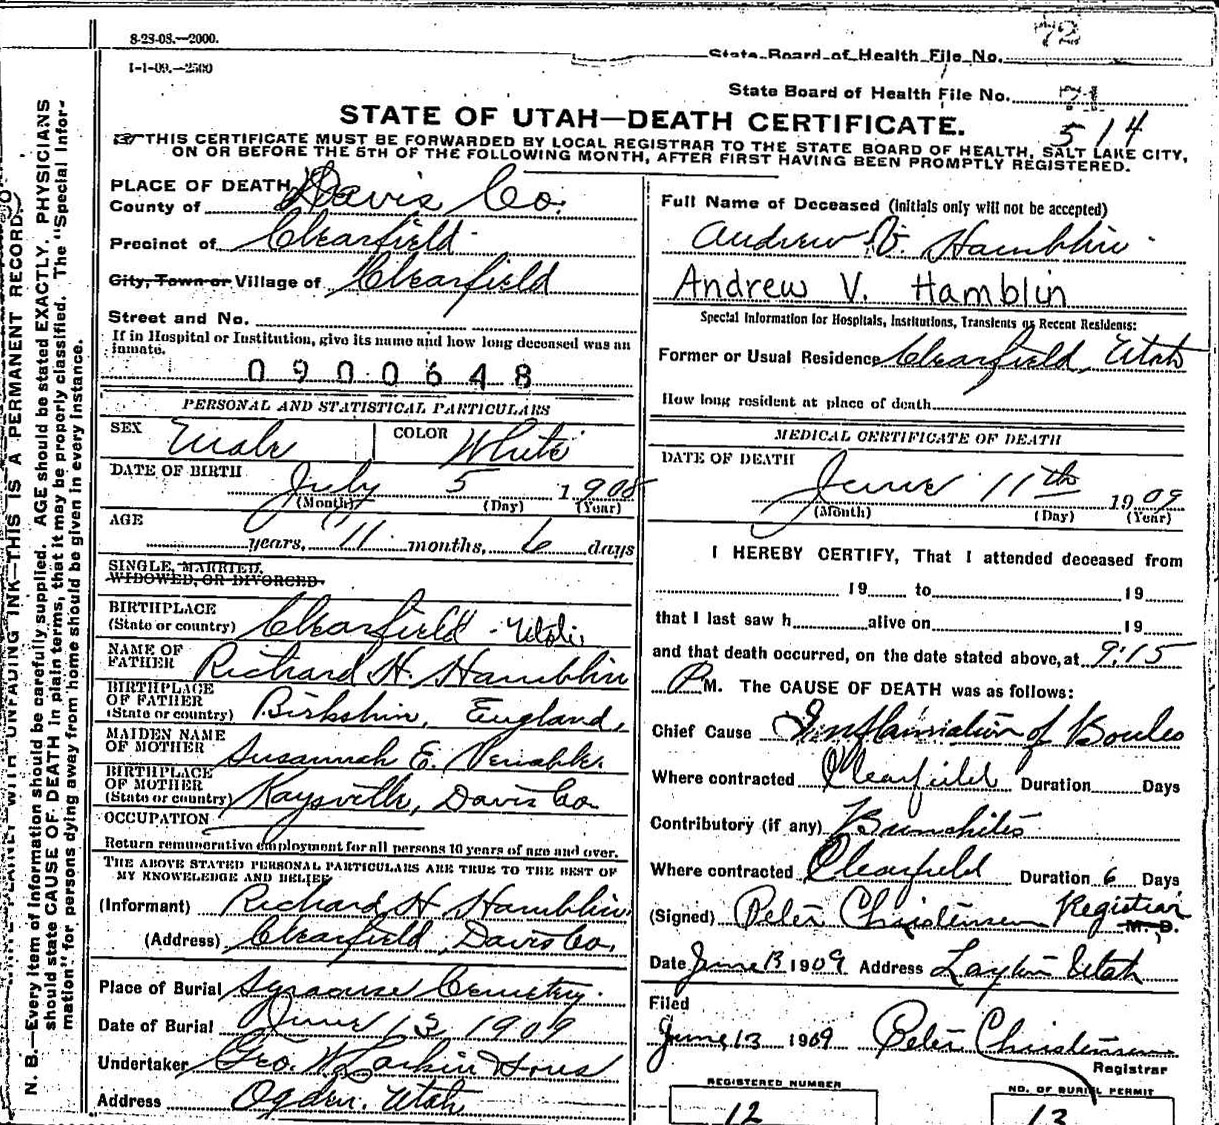 8-23-08.—2000.
72
State Board of Health File No.
1-1-09.—2500
State Board of Health File No. 71
STATE OF UTAH—DEATH CERTIFICATE.
514
THIS CERTIFICATE MUST BE FORWARDED BY LOCAL REGISTRAR TO THE STATE BOARD OF HEALTH, SALT LAKE CITY,
ON OR BEFORE THE 5TH OF THE FOLLOWING MONTH, AFTER FIRST HAVING BEEN PROMPTLY REGISTERED.
PLACE OF DEATH
County of Davis Co.
Precinct of Clearfield
City, Town or Village of Clearfield
Street and No.
If in Hospital or Institution, give its name and how long deceased was an
inmate.
0900648
PERSONAL AND STATISTICAL PARTICULARS
SEX Male COLOR White
DATE OF BIRTH
July 5 1908
(Month) (Day) (Year)
AGE
years, 11 months, 6 days
SINGLE, MARRIED,
WIDOWED, OR DIVORCED.
BIRTHPLACE
(State or country) Clearfield - Utah
NAME OF
FATHER Richard H. Hamblin
BIRTHPLACE
OF FATHER
(State or country) Birkshin, England,
MAIDEN NAME
OF MOTHER Susannah E. Venable
BIRTHPLACE
OF MOTHER
(State or country) Kaysville, Davis Co.
OCCUPATION
Return remunerative employment for all persons 10 years of age and over.
THE ABOVE STATED PERSONAL PARTICULARS ARE TRUE TO THE BEST OF
MY KNOWLEDGE AND BELIEF
(Informant) Richard H Hamblin
(Address) Clearfield Davis Co.
Place of Burial Syracuse Cemetery.
Date of Burial June 13 1909
Undertaker Geo. W. Larkin & Sons
Address Ogden, Utah
Full Name of Deceased (Initials only will not be accepted)
Andrew V. Hamblin
Andrew V. Hamblin
Special Information for Hospitals, Institutions, Transients or Recent Residents:
Former or Usual Residence Clearfield, Utah
How long resident at place of death
MEDICAL CERTIFICATE OF DEATH
DATE OF DEATH
June 11th 1909
(Month) (Day) (Year)
I HEREBY CERTIFY, That I attended deceased from
19 to 19
that I last saw h alive on 19
and that death occurred, on the date stated above, at 9:15
P M. The CAUSE OF DEATH was as follows:
Chief Cause Inflamation of Boules
Where contracted Clearfield Duration Days
Contributory (if any) Brunchites
Where contracted Clearfield Duration 6 Days
(Signed) Peter Christensen Registrar M. D.
Date June 13 1909 Address Layton Utah
Filed
June 13 1909 Peter Christensen
Registrar
REGISTERED NUMBER
12
NO. OF BURIAL PERMIT
13
N. B.—Every item of information should be carefully supplied. AGE should be stated EXACTLY. PHYSICIANS
should state CAUSE OF DEATH in plain terms, that it may be properly classified. The "Special Infor-
mation" for persons dying away from home should be given in every instance.
WITH UNFADING INK—THIS IS A PERMANENT RECORD